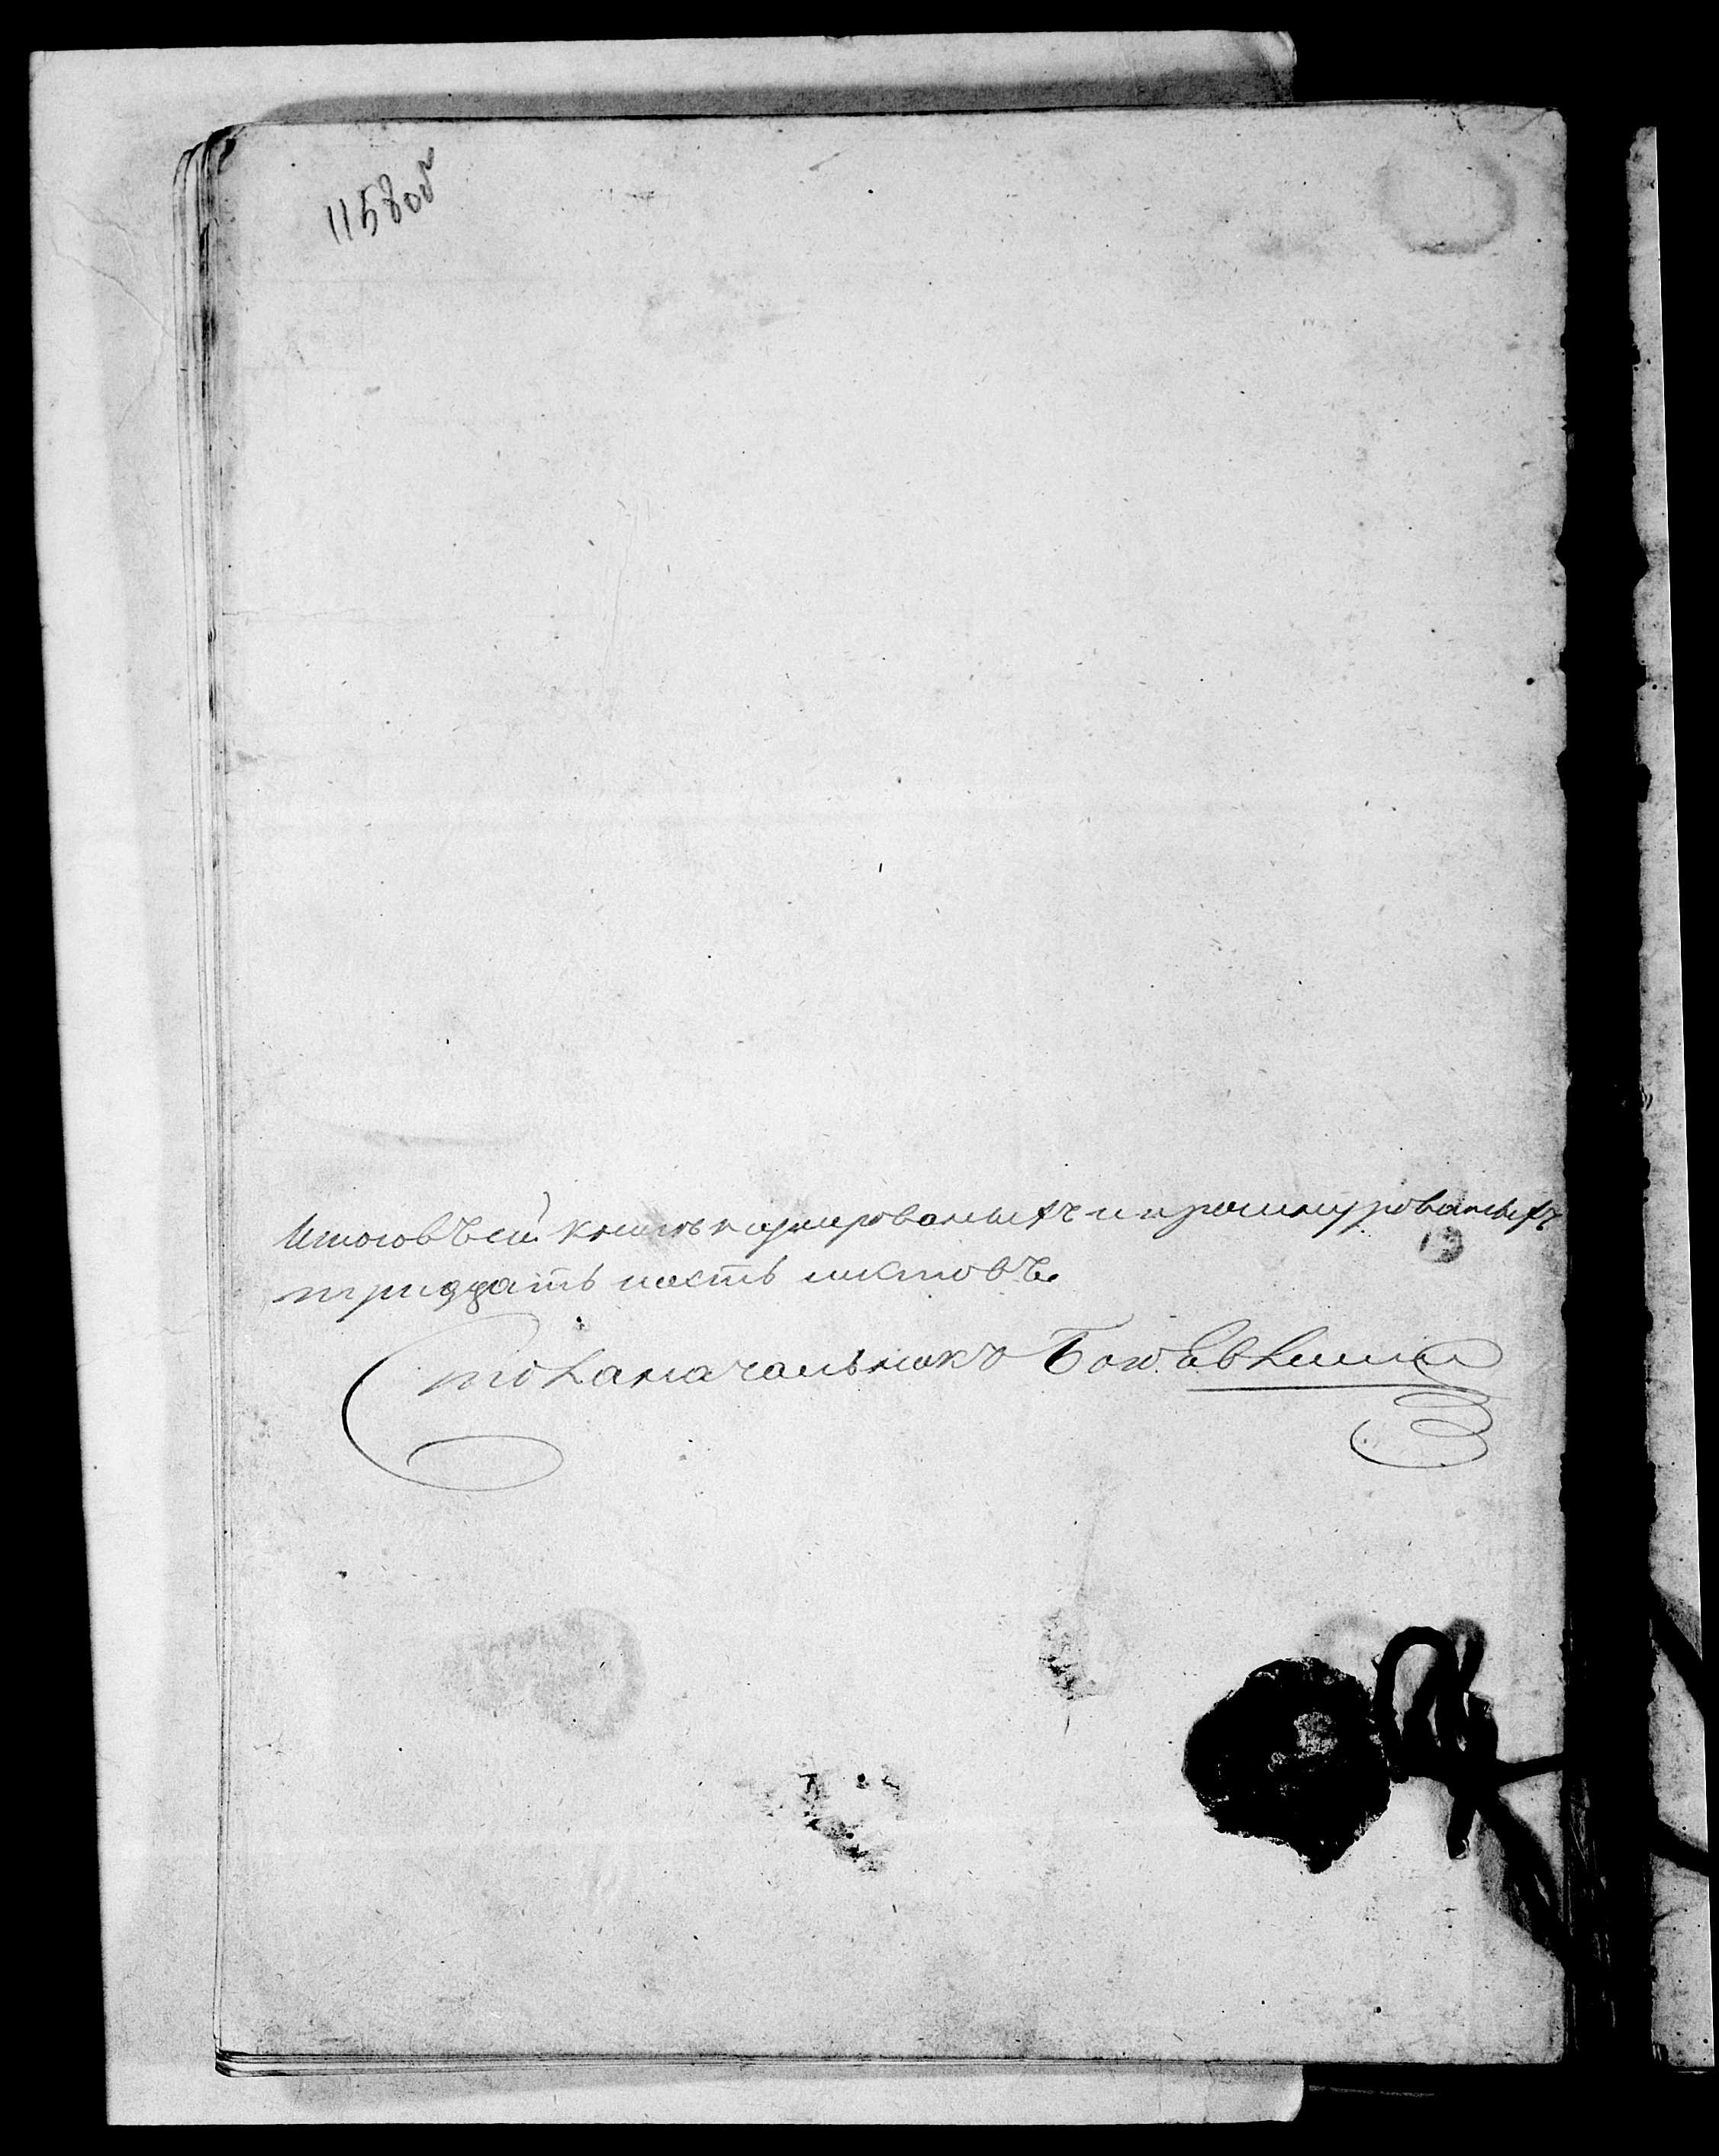 1158об
Итого въ сей книге нумерованыхъ и прошнурованыхъ
тридцать шесть листовъ.
Столаначальникъ